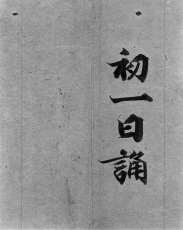 初一日誦